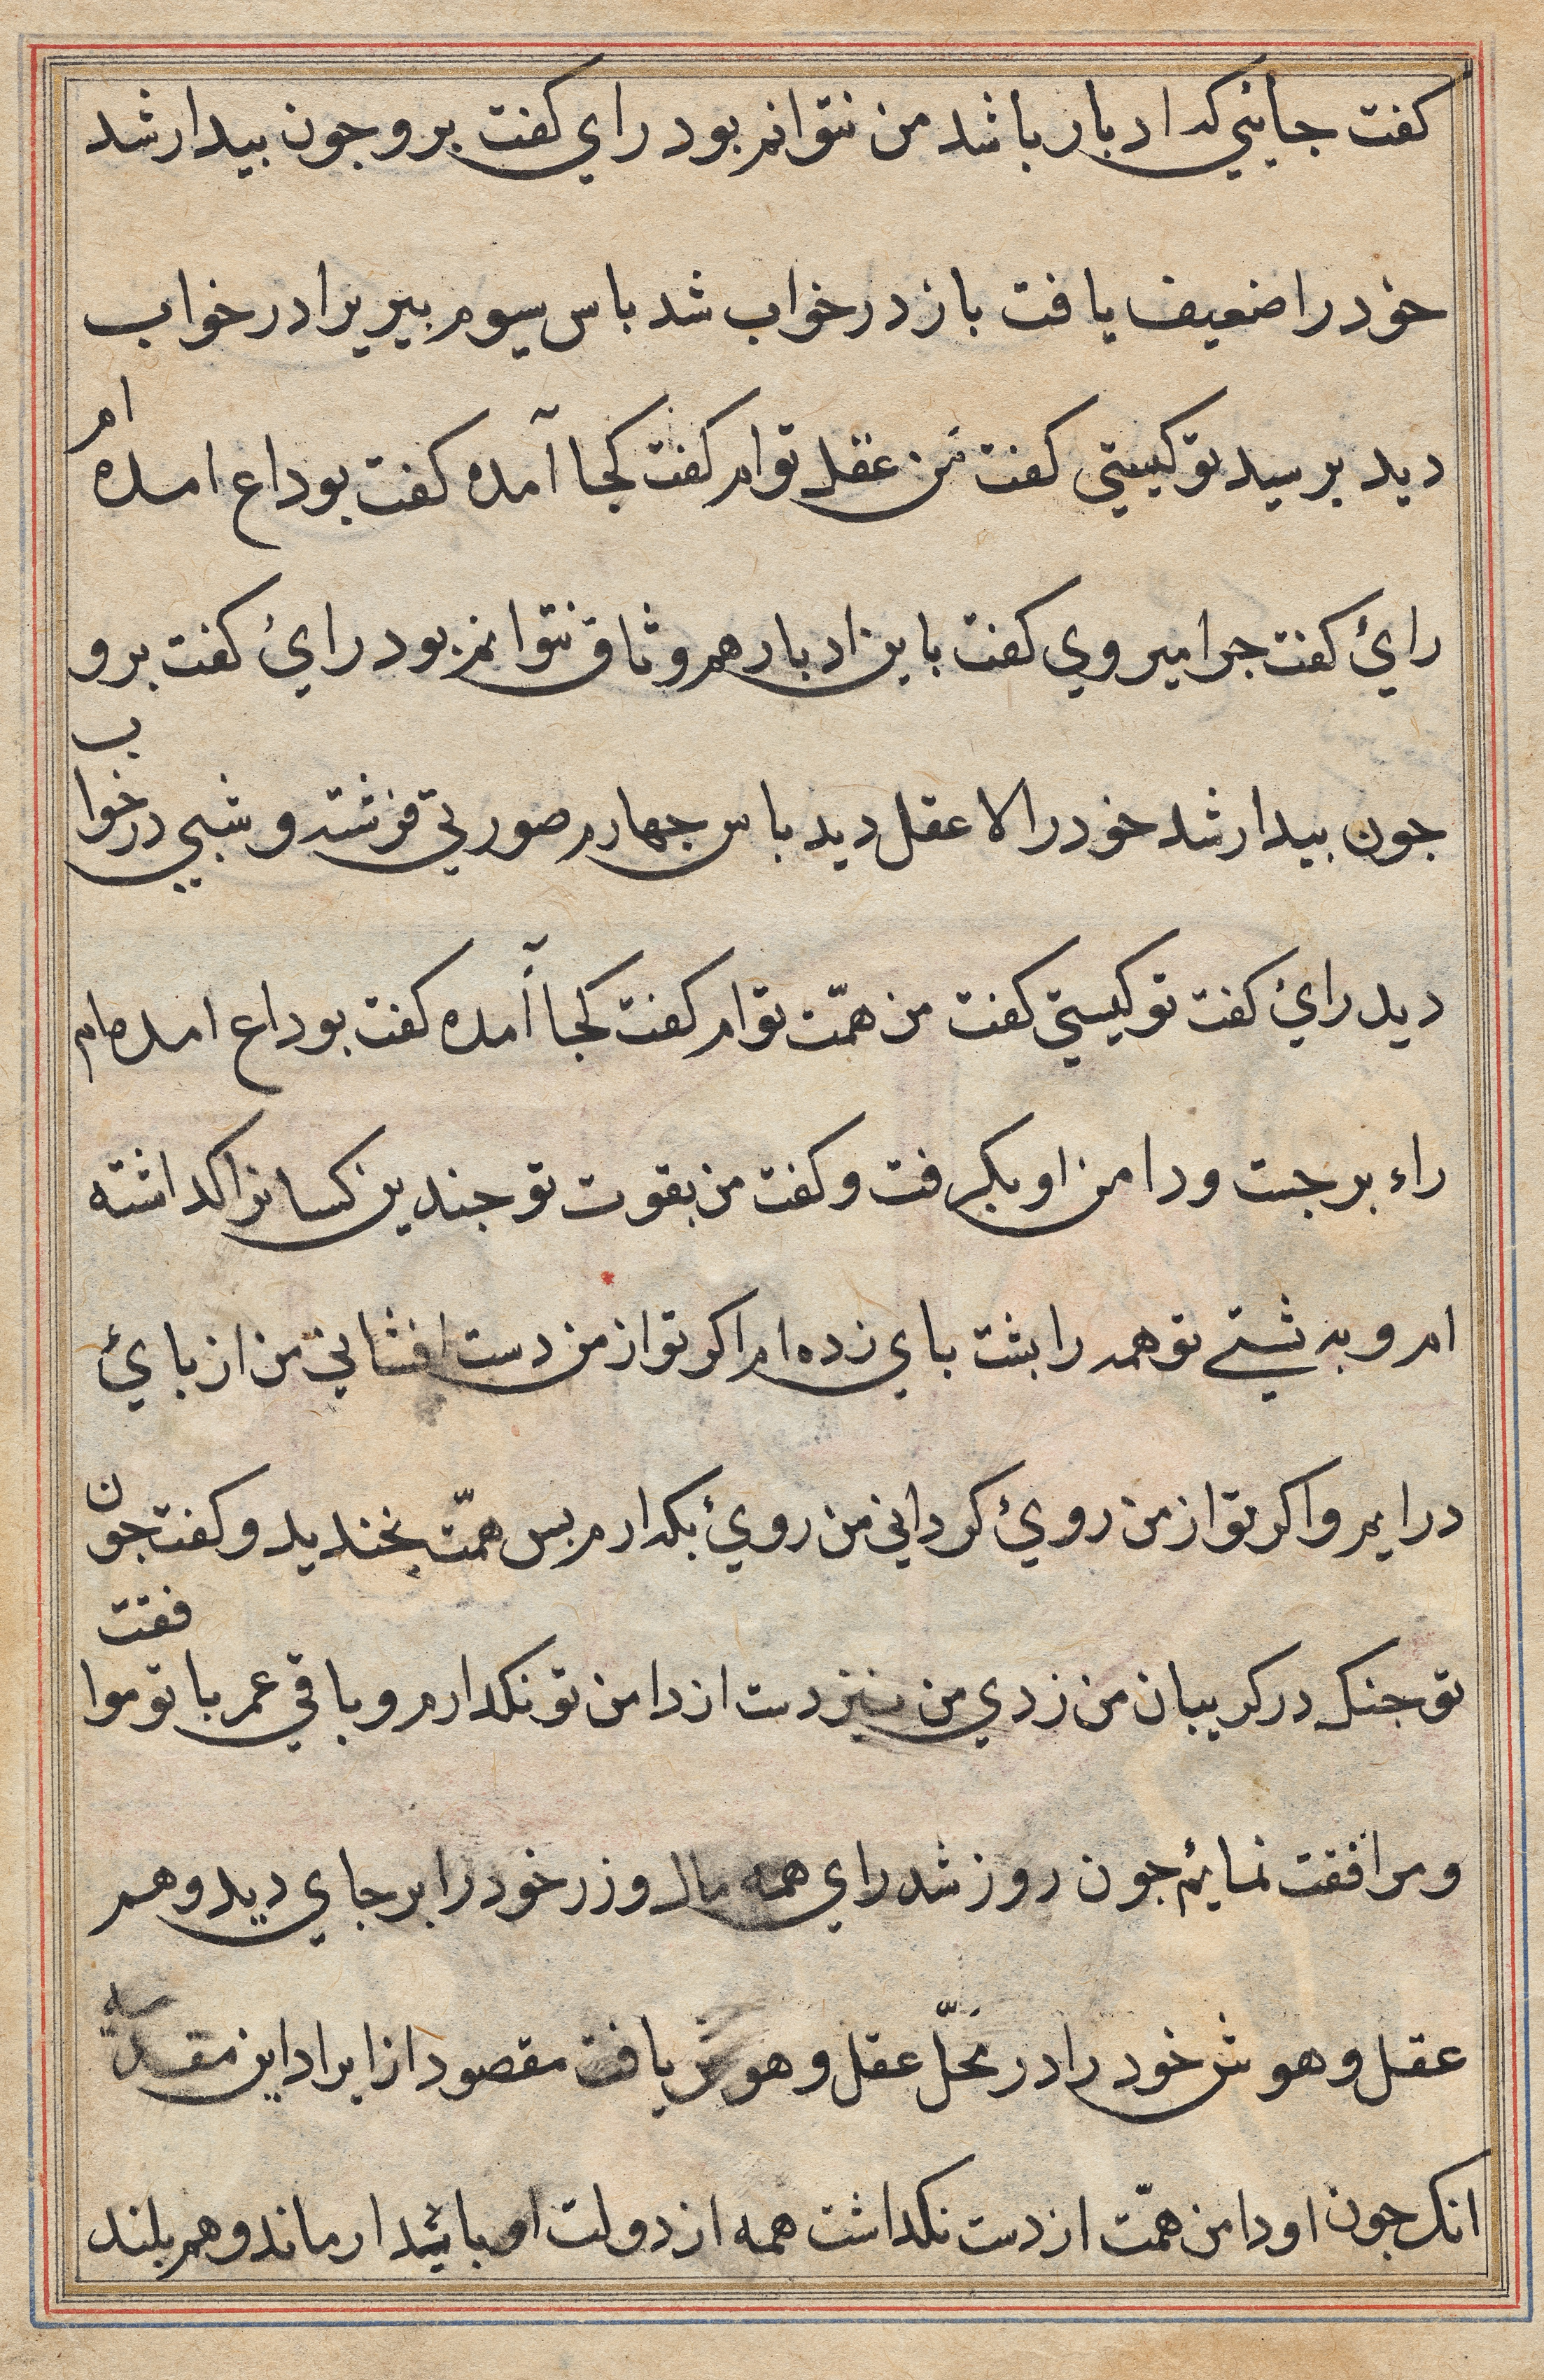 كفت جايئي كه ادبار باشد من نتوانم بود راي كفت برو جون بيدار شد
خود را ضعيف يافت باز در خواب شد باس سيوم بيريرا در خواب
ديد برسيد تو كيستي كفت من عقل توام كفت كجا آمده كفت بوداع امده ام
رائ كفت جرا ميروي كفت با ين ادبار هم وثاق نتوانم بود رائ كفت برو
جون بيدار شد خود را لا عقل ديد باس جهارم صورتي فرشته وشبي در خواب
ديد رائ كفت تو كيستي كفت من همّت توام كفت كجا آمده كفت بوداع امده ام
راء برجست ودامن او بكرفت وكفت من بقوت تو جندين كسانرا كداشته
ام وبه بشتي تو همه را بشت باي زده ام اكر تو از من دست افشاني من از بائ
درايم واكر تو از من روئ كرداني من روئ بكدارم بس همّت بخنديد وكفت جون
تو جنك در كريبان من زدي من نيز دست از دامن تو نكدارم وباقي عمر با تو موافقت
ومرافقت نمايم جون روز شد راي همه مال وزر خود را بر جاي ديد وهم
عقل وهوش خود را در محلّ عقل وهوش يافت مقصود از ايراد اين مقدمه
انك جون او دامن همّت از دست نكداشت همه از دولت او بائيدار ماند وهم بلند